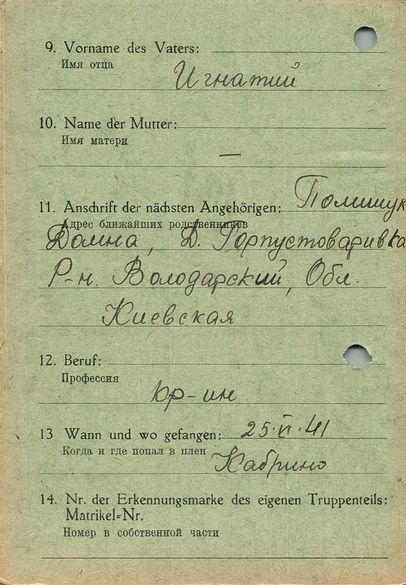 9. Vorname des Vaters:
Имя отца
Игнатий
10. Name der Mutter:
Имя матери
—
11. Anschrift der nächsten Angehörigen: Полищук
Адрес ближайших родственников
Домна, Д. Горпустоваривка
Р-н. Володарский, Обл.
Киевская
12. Beruf:
Профессия
кр-ин
13 Wann und wo gefangen: 25.VI.41
Когда и где попал в плен
Кабрино
14. Nr. der Erkennungsmarke des eigenen Truppenteils:
Matrikel-Nr.
Номер в собственной части